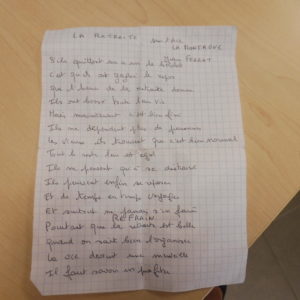 LA RETRAITE sur l'air
LA MONTAGNE
Jean FERRAT
S'ils quittent un à un le boulot
C'est qu'ils ont gagné le repos
Que l'heure de la retraite sonne
Ils ont bossé toute leur vie
Mais maintenant c'est bien fini
Ils ne dépendent plus de personne
La vie ils trouvent que c'est bien
Tout le reste leur est égal
Ils ne pensent qu'à se distraire
Ils peuvent enfin se reposer
Et de temps en temps voyager
Et surtout ne jamais s'en faire
REFRAIN
Pourtant que la retraite est belle
Quand on sait bien l'organiser
La vie devient une merveille
Il faut savoir en profiter